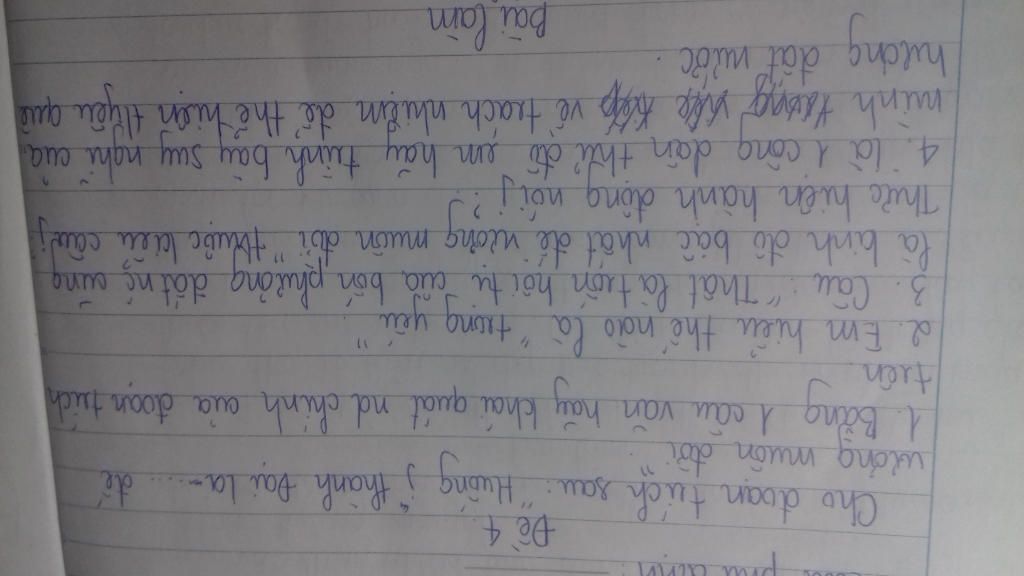 Đề 4
Cho đoạn trích sau: "Huống j thành Đại La ..... đế
vương muôn đời".
1. Bằng 1 câu văn hãy khái quát nd chính của đoạn trích
trên.
2. Em hiểu thế nào là "trọng yếu".
3. Câu: "Thật là trốn hội tụ của bốn phương đất nc cũng
là kinh đô bậc nhất đế vương muôn đời" thuộc kiểu câu j,
Thực hiện hành động nói j?
4. Là 1 công dân thủ đô em hãy trình bày suy nghĩ của
mình về trách nhiệm để thể hiện tìyêu quê
hương đất nước.
Bài làm